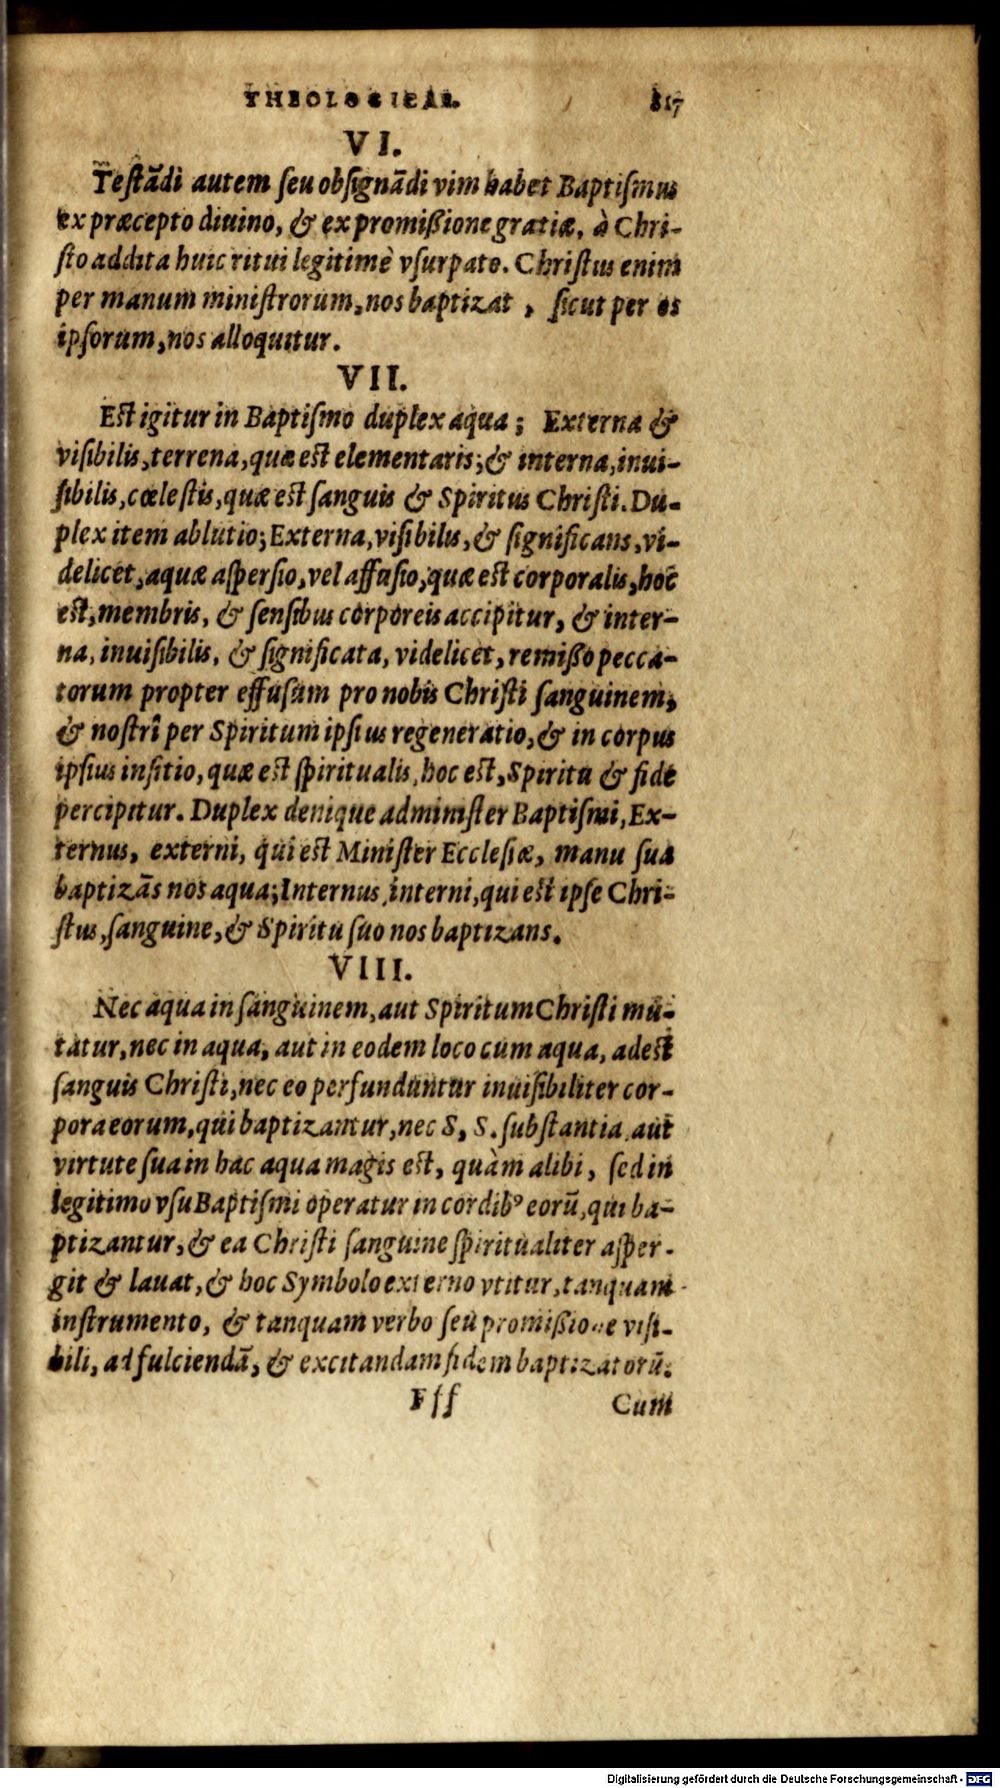 THEOLOGICAE. 817
VI.
Testãdi autem ſeu obſignãdi vim habet Baptiſmus
ex præcepto diuino, & ex promißione gratiæ, à Chri-
ſto addita huic ritui legitimè vſurpato. Chriſtus enim
per manum miniſtrorum, nos baptizat, ſicut per os
ipſorum, nos alloquitur.
VII.
Eſt igitur in Baptiſmo duplex aqua; Externa &
viſibilis, terrena, quæ eſt elementaris; & interna, inui-
ſibilis, cœleſtis, quæ eſt ſanguis & Spiritus Chriſti. Du-
plex item ablutio; Externa, viſibilis, & ſignificans, vi-
delicet, aquæ aſperſio, vel affuſio, quæ eſt corporalis, hoc
eſt, membris, & ſenſibus corporeis accipitur, & inter-
na, inuiſibilis, & ſignificata, videlicet, remißo pecca-
torum propter effuſum pro nobis Chriſti ſanguinem,
& noſtri per Spiritum ipſius regeneratio, & in corpus
ipſius inſitio, quæ eſt ſpiritualis, hoc eſt, Spiritu & fide
percipitur. Duplex denique adminiſter Baptiſmi, Ex-
ternus, externi, qui eſt Miniſter Eccleſiæ, manu ſua
baptizãs nos aqua; Internus, interni, qui eſt ipſe Chri-
ſtus, ſanguine, & Spiritu ſuo nos baptizans.
VIII.
Nec aqua in ſanguinem, aut Spiritum Chriſti mu-
tatur, nec in aqua, aut in eodem loco cum aqua, adeſt
ſanguis Chriſti, nec eo perfunduntur inuiſibiliter cor-
pora eorum, qui baptizantur, nec S. S. ſubſtantia aut
virtute ſua in hac aqua magis eſt, quàm alibi, ſed in
legitimo vſu Baptiſmi operatur in cordibꝰ eorũ, qui ba-
ptizantur, & ea Chriſti ſanguine ſpiritualiter aſper-
git & lauat, & hoc Symbolo externo vtitur, tanquam
inſtrumento, & tanquam verbo ſeu promißione viſi-
bili, ad fulciendã, & excitandam fidem baptizatorũ.
Fff Cum
Digitalisierung gefördert durch die Deutsche Forschungsgemeinschaft - DFG